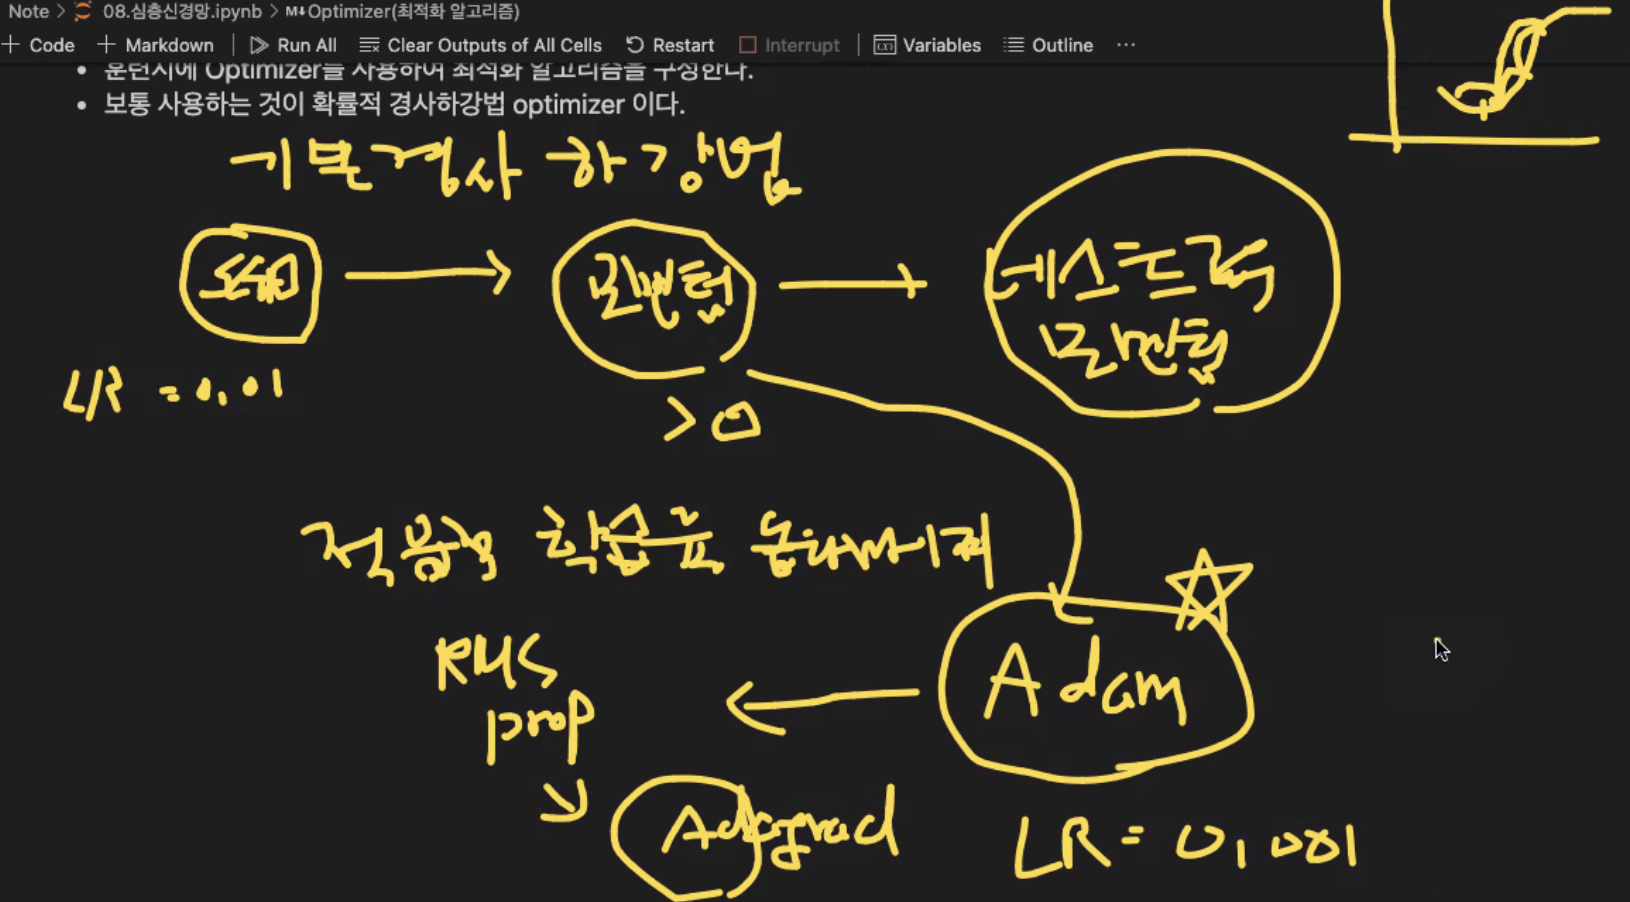 Note > 08.심층신경망.ipynb > M↓Optimizer(최적화 알고리즘)
+ Code + Markdown | Run All Clear Outputs of All Cells Restart Interrupt | Variables Outline ...
• 훈련시에 Optimizer를 사용하여 최적화 알고리즘을 구성한다.
• 보통 사용하는 것이 확률적 경사하강법 optimizer 이다.
기본경사 하강법
SGD
모멘텀
네스테로프
모멘텀
LR = 0.01
> 0
적응적 학습률 옵티마이저
RMS
prop
Adam
Adagrad
LR = 0.001